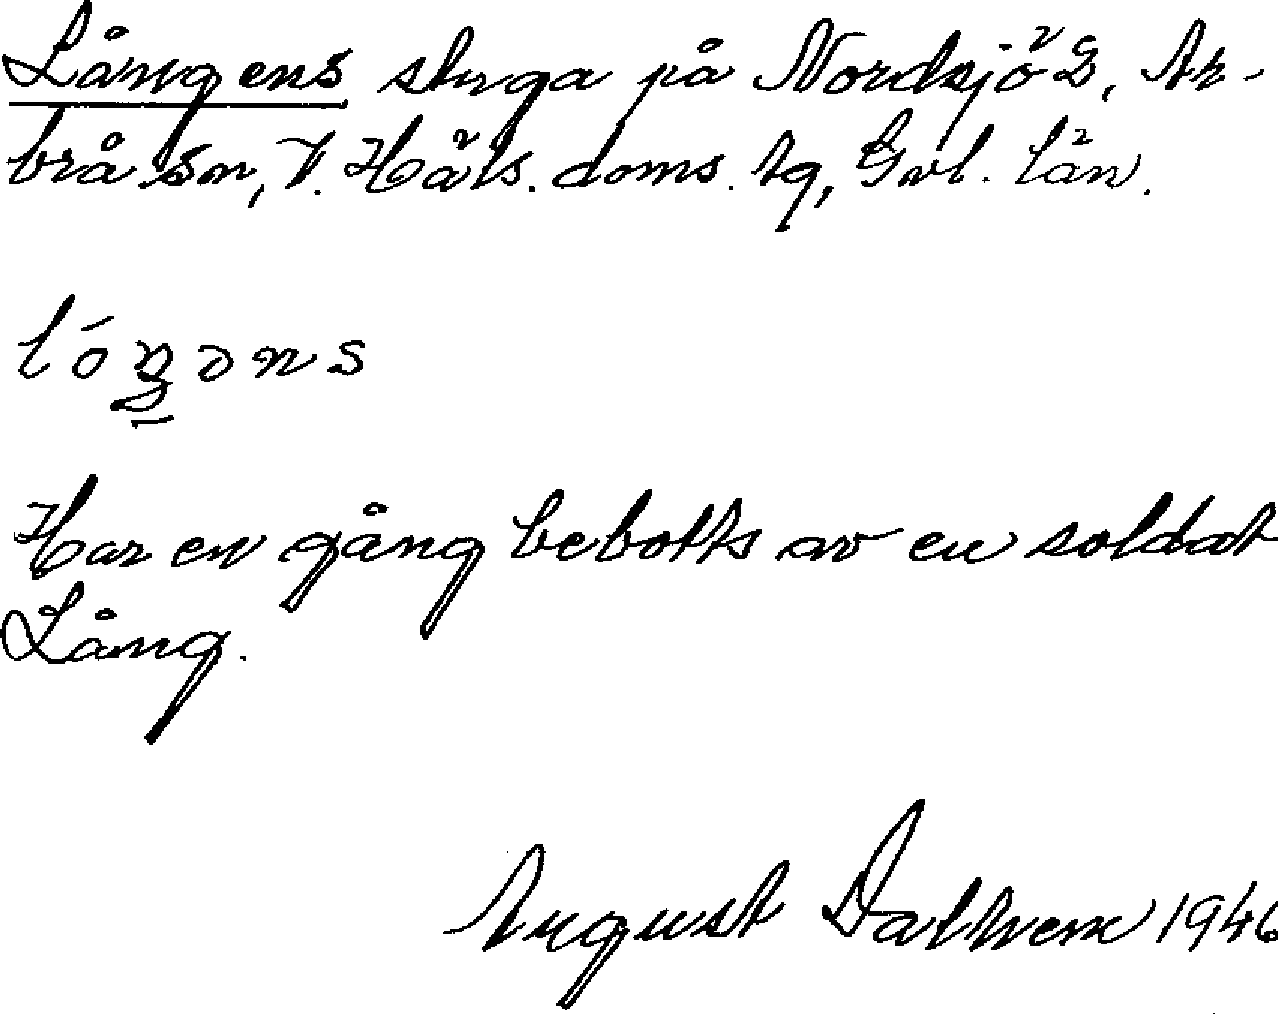 Långens stuga på Nordsjö 2, Ar-
brå sn, V. Häls. doms. tg, Gvl. län.
lóŋəns
Har en gång bebotts av en soldat
Lång.
August 1946